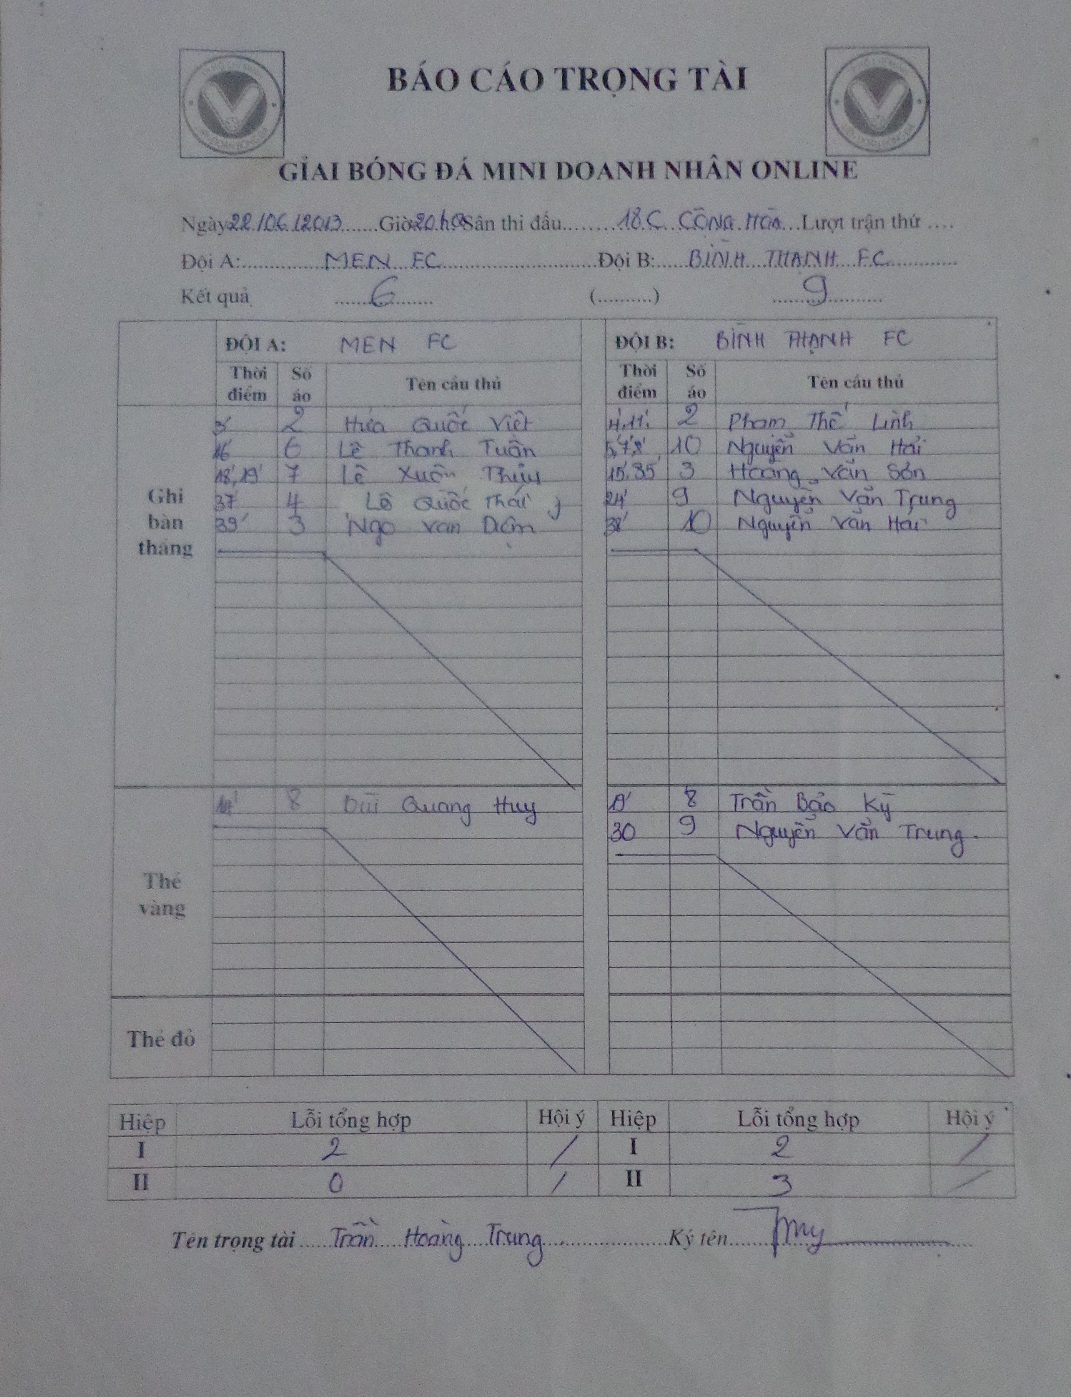 BÁO CÁO TRỌNG TÀI
GIẢI BÓNG ĐÁ MINI DOANH NHÂN ONLINE
Ngày 22/06/2013 Giờ 20h0 Sân thi đấu 18C CỘNG HÒA Lượt trận thứ ....
Đội A: MEN FC Đội B: BÌNH THẠNH FC
Kết quả 6 (..........) 9
ĐỘI A: MEN FC ĐỘI B: BÌNH THẠNH FC
Thời điểm Số áo Tên cầu thủ Thời điểm Số áo Tên cầu thủ
Ghi bàn thắng
3' 2 Hứa Quốc Việt 4',11' 2 Phạm Thế Linh
16' 6 Lê Thanh Tuấn 5',7',8' 10 Nguyễn Văn Hải
18',19' 7 Lê Xuân Thủy 15',35' 3 Hoàng Văn Sơn
37' 4 Lê Quốc Thái 24' 9 Nguyễn Văn Trung
39' 3 Ngo Van Diệm 38' 10 Nguyễn Văn Hải
Thẻ vàng
8 Bùi Quang Huy 8 Trần Bảo Kỳ
30 9 Nguyễn Văn Trung.
Thẻ đỏ
Hiệp Lỗi tổng hợp Hội ý Hiệp Lỗi tổng hợp Hội ý
I 2 / I 2 /
II 0 / II 3 /
Tên trọng tài Trần Hoàng Trung Ký tên